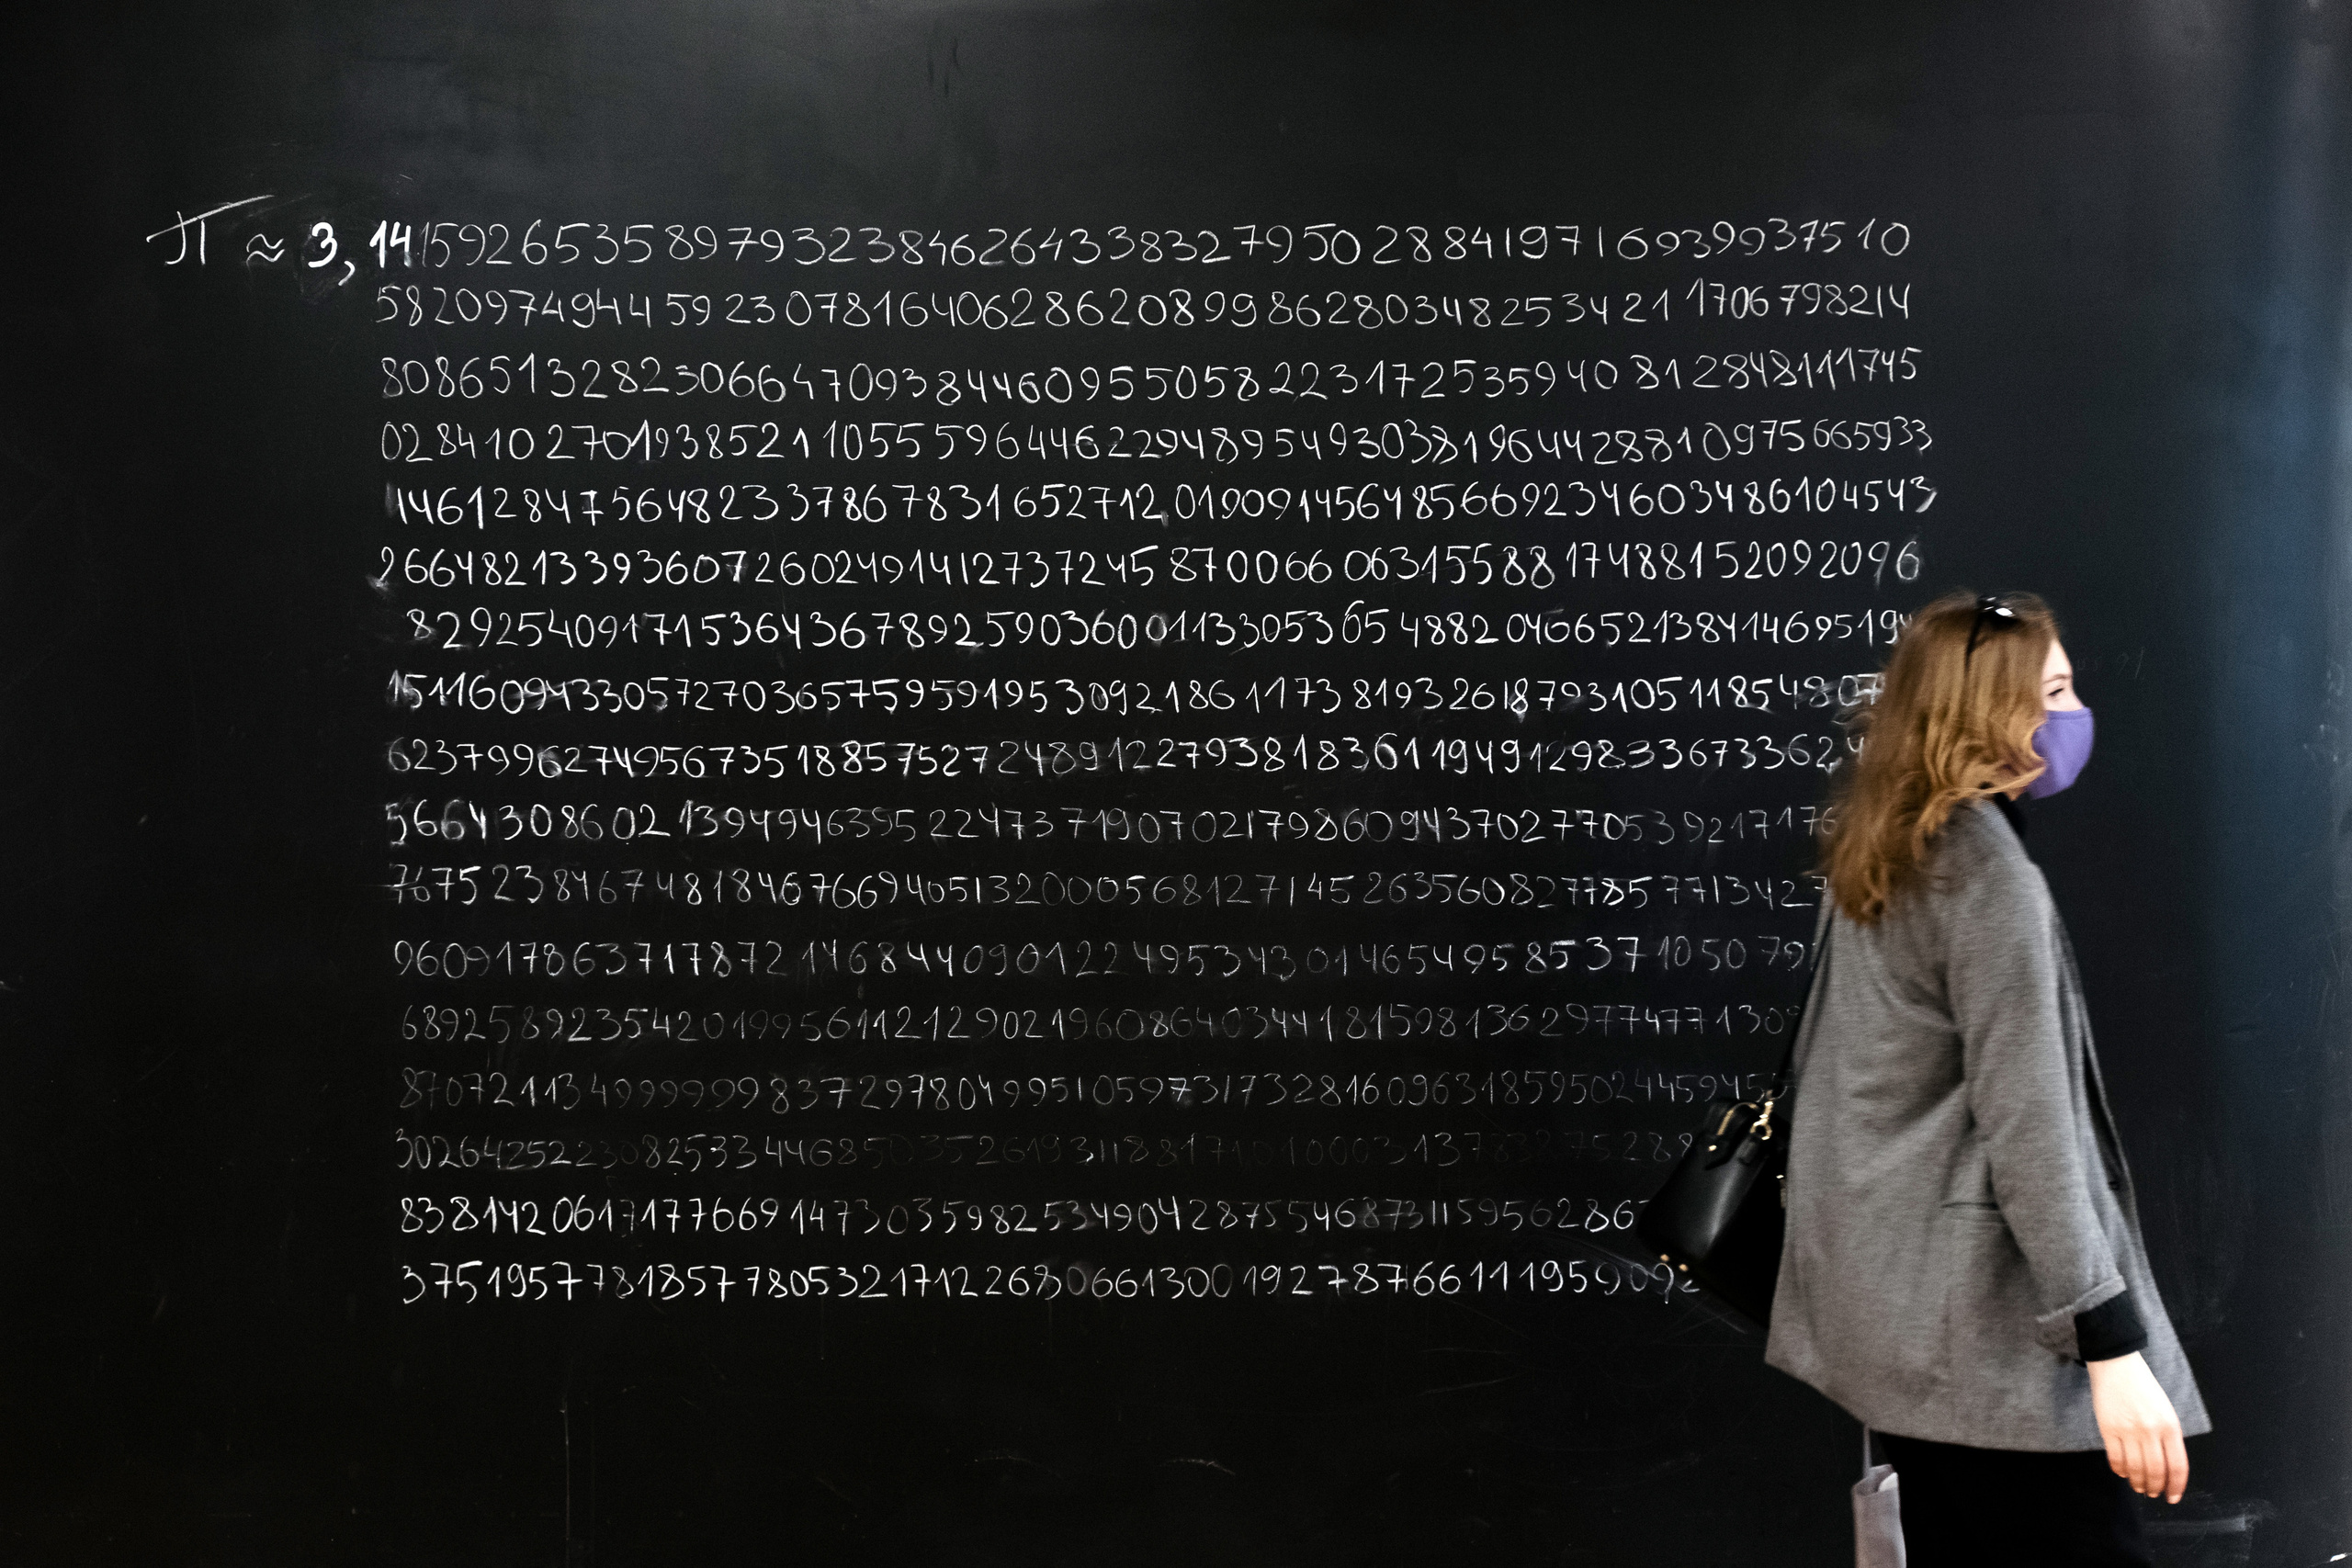 π ≈ 3,14159265358979323846264338327950288419716939937510
58209749445923078164062862089986280348253421 1706798214
808651328230664709384460955058223172535940812848111745
0284102701938521105559644622948954930381964428810975665933
4461284756482337867831652712019091456485669234603486104543
2664821339360726024914127372458700660631558817488152092096
829254091715364367892590360011330536548820466521384146951​94
15116094330572703657595919530921861173819326187931051185480​7
623799627495673518857527248912279381836119491298336733624
56643086021394946395224737190702179860943702770539217176
767523846748184676694051320005681271452635608277857713427
960917863717872146844090122495343014654958537105079
689258923542019956112129021960864034418159813629774771309
870721134999999837297804995105973173281609631859502445945
302642522308253344685035261931188171010003137838752 88
838142061717766914730359825349042875546873115956286
3751957781857780532171226806613001927876611195909​2